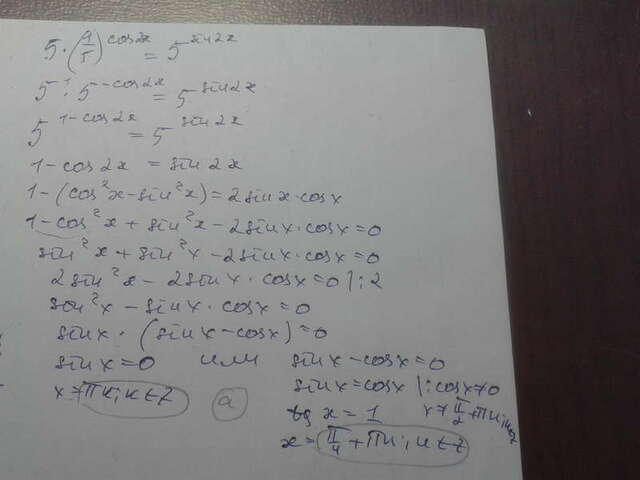 5 · (1/5)^cos2x = 5^sin2x
5^1 · 5^-cos2x = 5^sin2x
5^1-cos2x = 5^sin2x
1-cos2x = sin2x
1-(cos²x-sin²x)=2sinx·cosx
1-cos²x+sin²x-2sinx·cosx=0
sin²x+sin²x-2sinx·cosx=0
2sin²x-2sinx·cosx=0 |:2
sin²x-sinx·cosx=0
sinx·(sinx-cosx)=0
sinx=0 или sinx-cosx=0
sinx=cosx |:cosx≠0
x=πк, к∈Z а tg x = 1 x≠π/2+πк,
x=π/4+πк, к∈Z